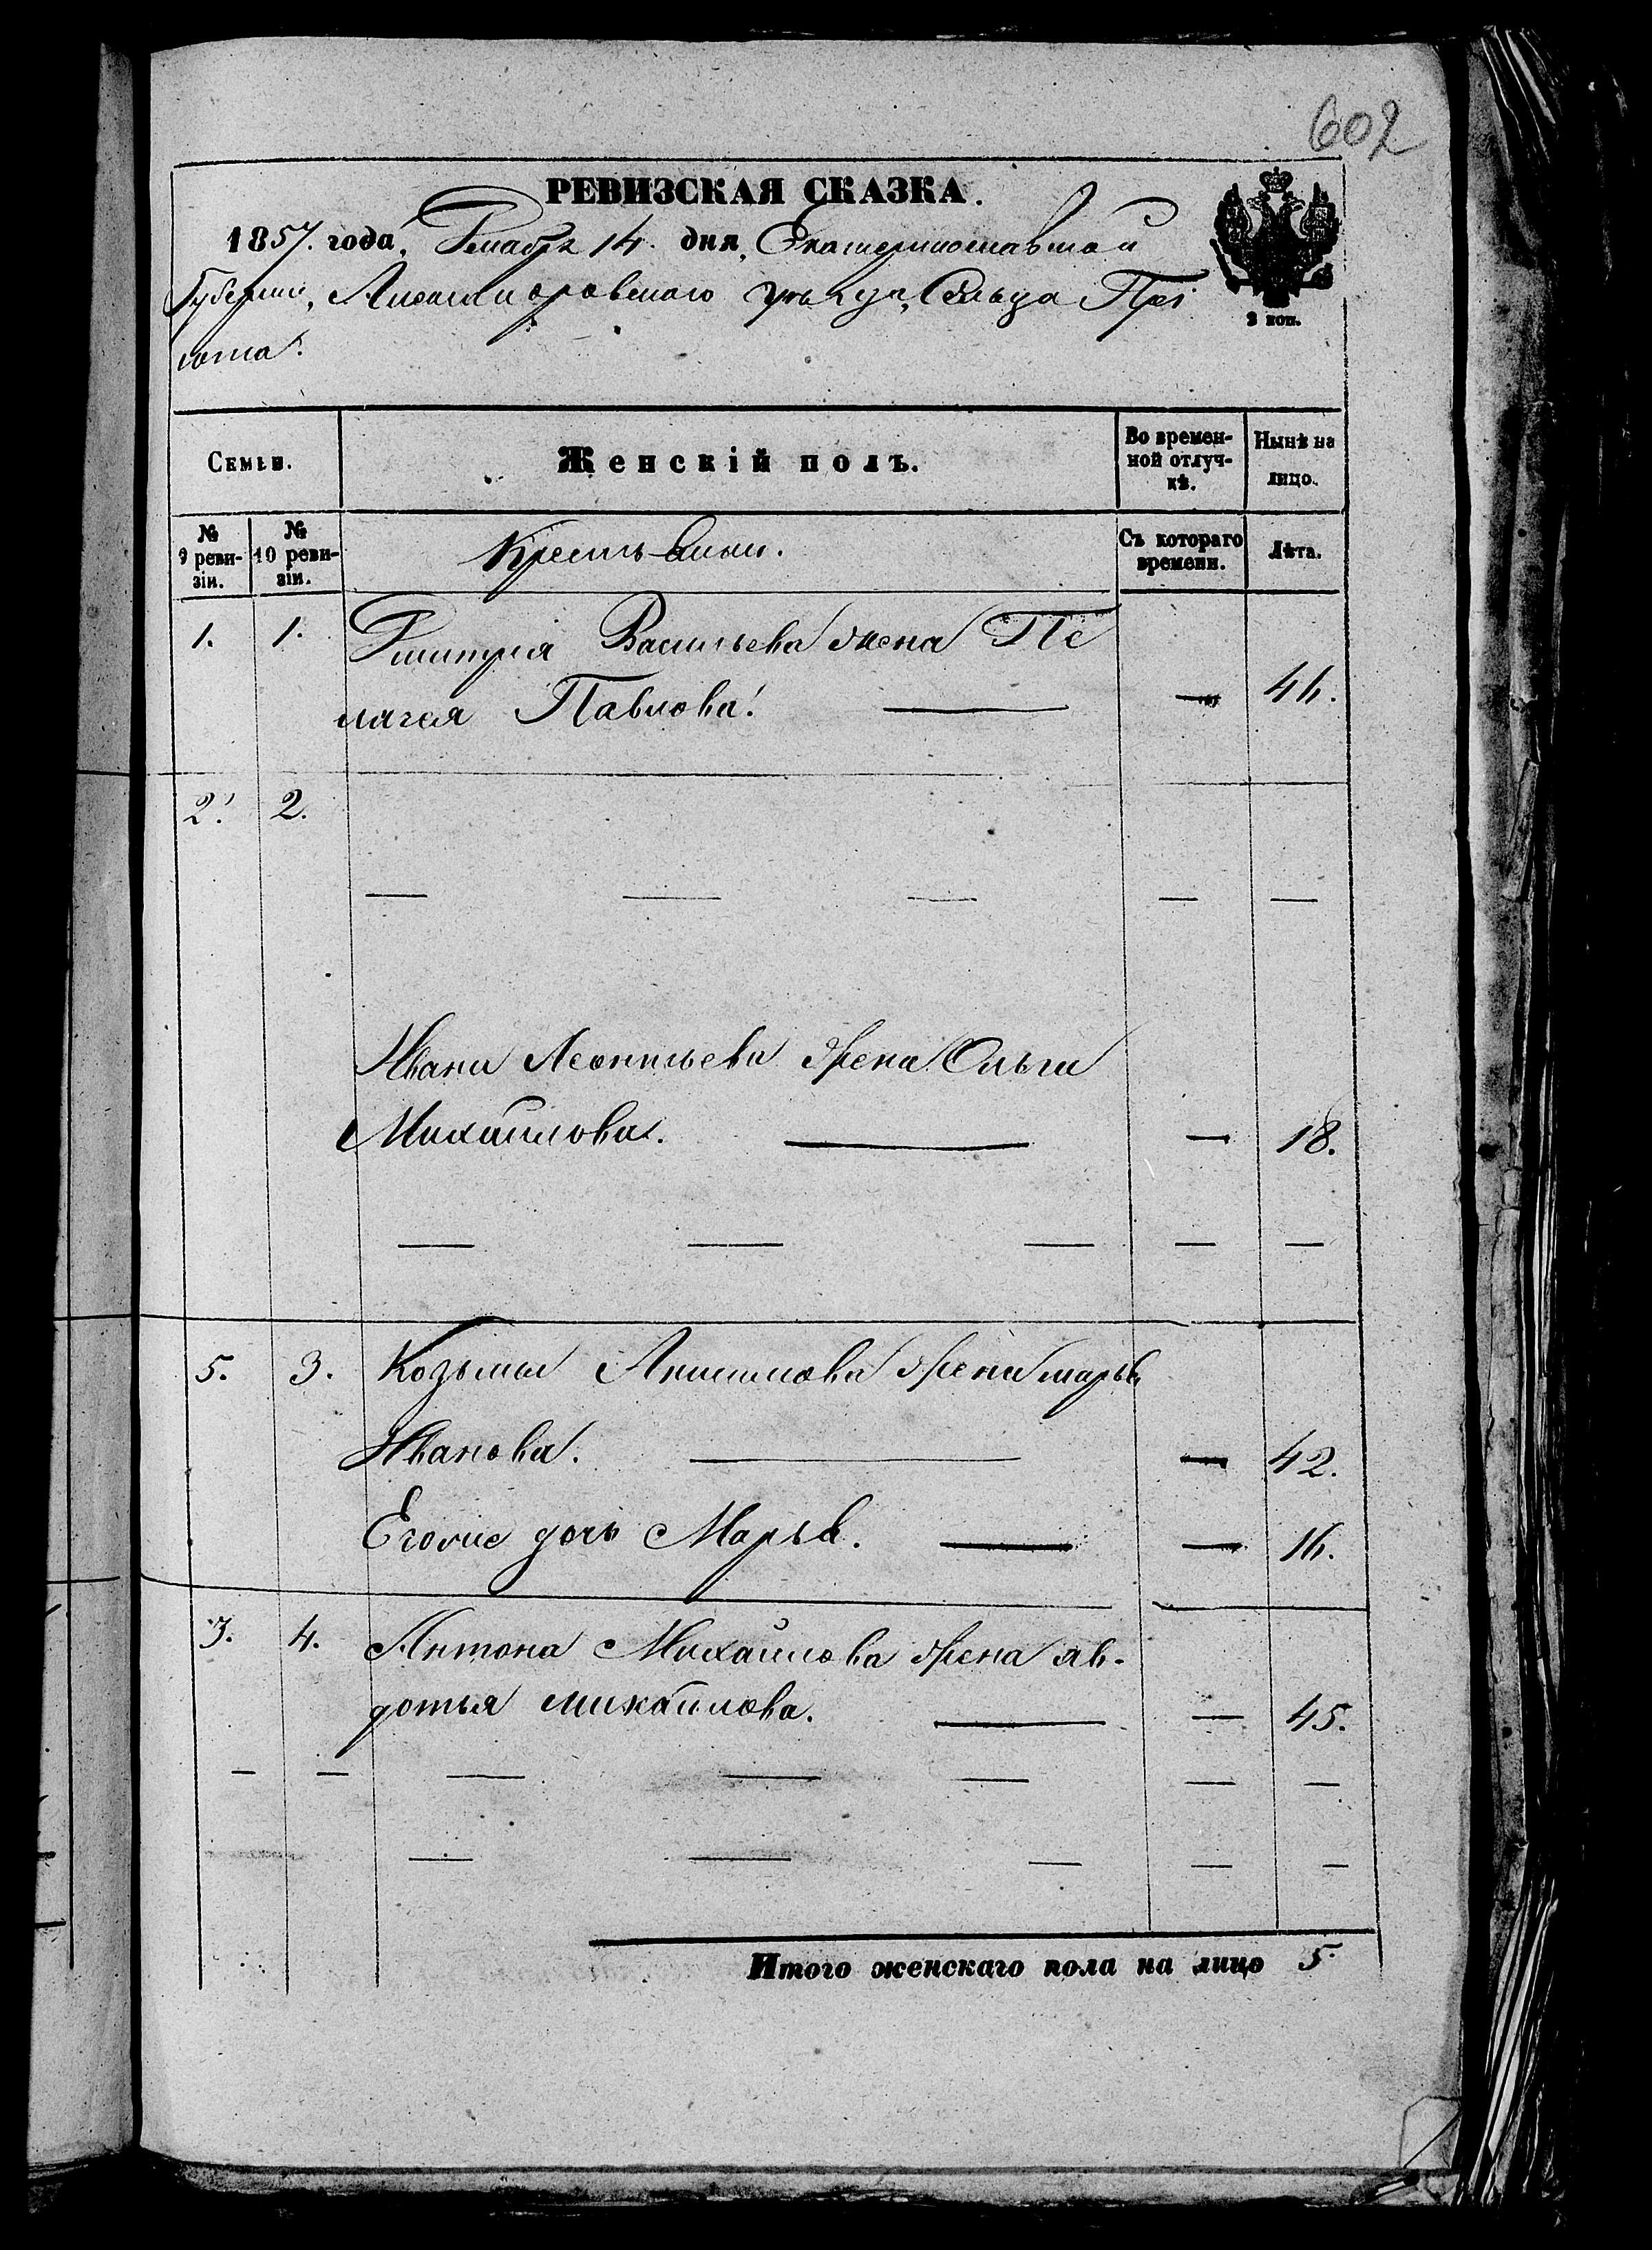 602
РЕВИЗСКАЯ СКАЗКА.
1857. года, Декабря 14. дня, Екатеринославской
Губерніи, Александровскаго уѣзда, Сельца Прі
юта.
2 коп.
Семьи.
Женскій полъ.
Во времен-
ной отлуч-
кѣ.
Нынѣ на
лицо.
№
9 реви-
зіи.
№
10 реви-
зіи.
Крестьяныи.
Съ котораго
времени.
Лѣта.
1. 1. Дмитрія Васильева жена Пе
лагея Павлова. — 44.
2. 2.
— — — — —
Ивана Леонтьева жена Ольга
Михайлова. — — 18.
— — — — —
5. 3. Козьмы Анисимова жена марья
Иванова. — — 42.
Егоже дочь Марья. — — 16.
3. 4. Антона Михайлова жена яв-
дотья михайлова. — — 45.
— — — — — — —
— — — — —
Итого женскаго пола на лицо 5